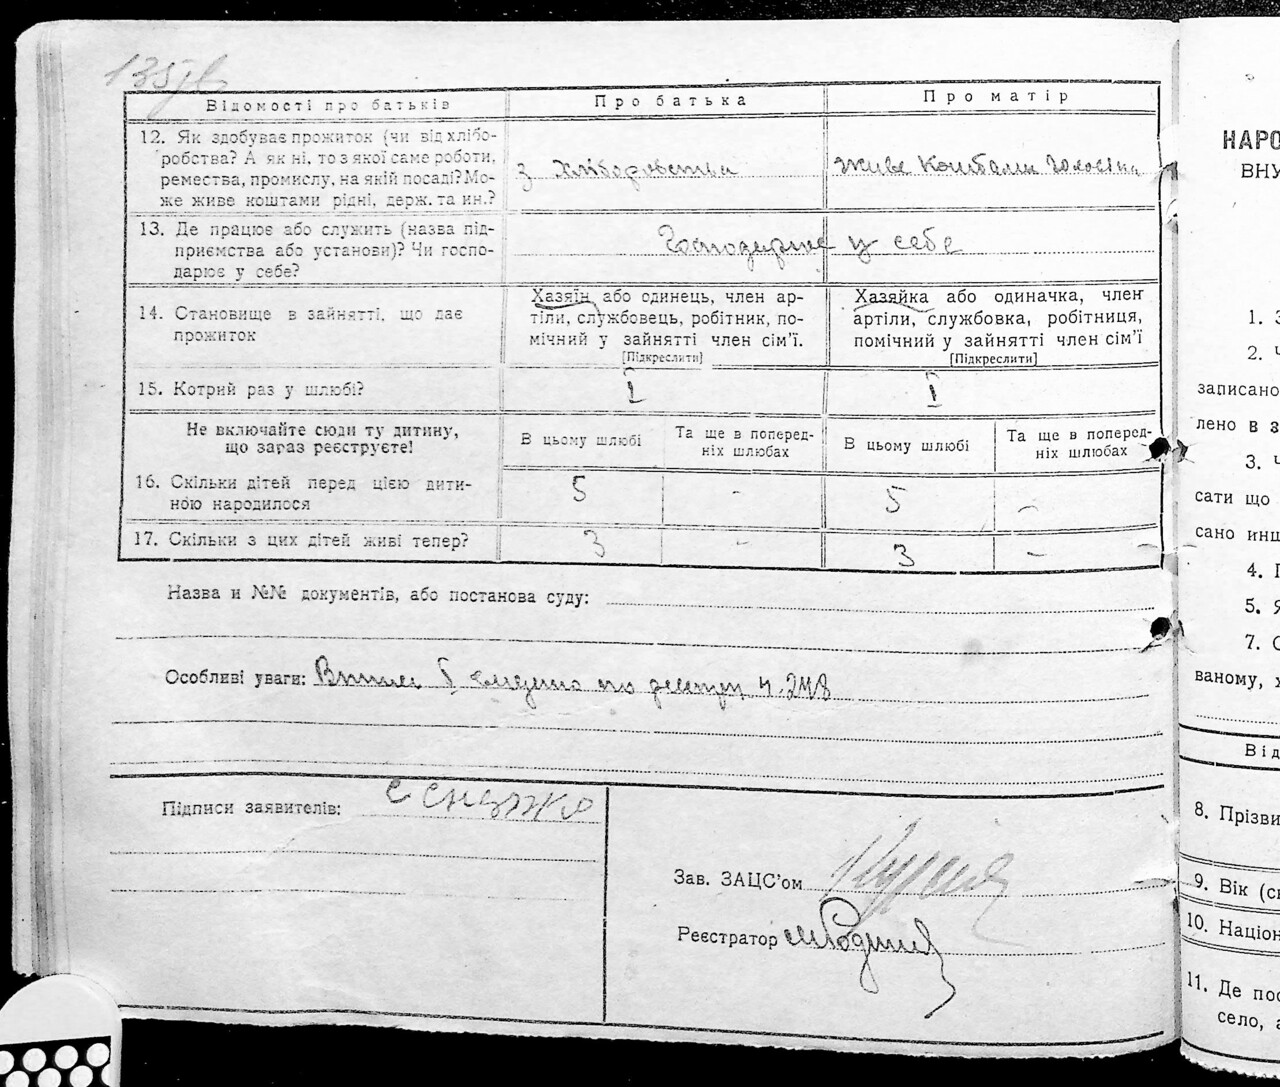 135
Відомості про батьків
Про батька
Про матір
12. Як здобуває прожиток (чи від хлібо-
робства? А як ні, то з якої саме роботи,
ремества, промислу, на якій посаді? Мо-
же живе коштами рідні, держ. та ин.?
з хліборобства
живе коштами чоловіка
13. Де працює або служить (назва під-
приємства або установи)? Чи госпо-
дарює у себе?
Господарює у себе
14. Становище в зайнятті, що дає
прожиток
Хазяїн або одинець, член ар-
тіли, службовець, робітник, по-
мічний у зайнятті член сім'ї.
[Підкреслити]
Хазяйка або одиначка, член
артіли, службовка, робітниця,
помічний у зайнятті член сім'ї
[Підкреслити]
15. Котрий раз у шлюбі?
I
I
Не включайте сюди ту дитину,
що зараз реєструєте!
В цьому шлюбі
Та ще в поперед-
ніх шлюбах
В цьому шлюбі
Та ще в поперед-
ніх шлюбах
16. Скільки дітей перед цією дити-
ною народилося
5
-
5
-
17. Скільки з цих дітей живі тепер?
3
-
3
-
Назва и №№ документів, або постанова суду:
Особливі уваги: по 248
Підписи заявителів:
Зав. ЗАЦС'ом
Реєстратор
НАРО
ВНУ
1. З
2. Ч
записано
лено в з
3. Ч
сати що
сано инш
4. П
5. Я
7. С
ваному, х
Від
8. Прізви
9. Вік (ск
10. Націон
11. Де пос
село, а